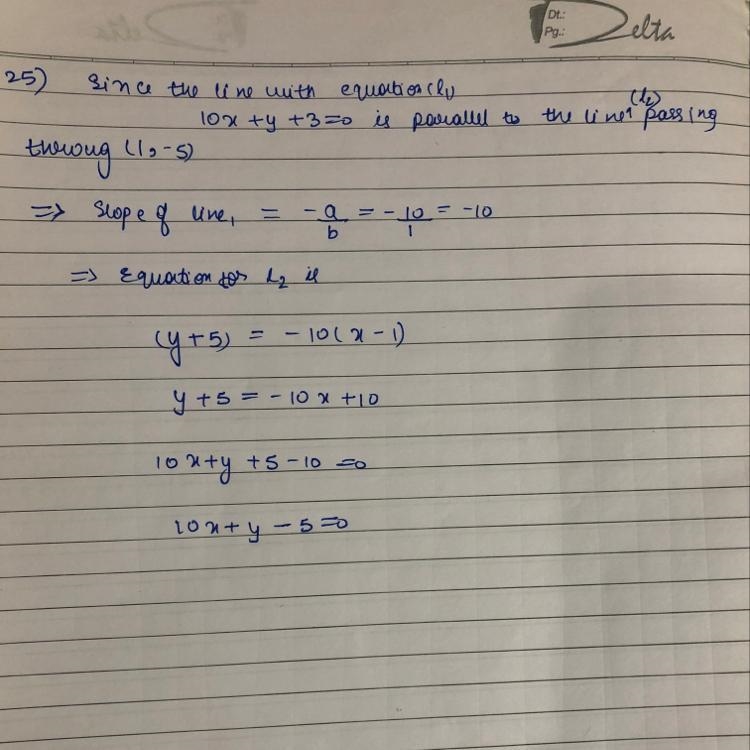 Dt.:
Pg.:
Delta
25) Since the line with equation (L1)
(L2)
10x + y + 3 = 0 is parallel to the line1 passing
throug (1, -5)
=> Slope of line1 = -a/b = -10/1 = -10
=> Equation for L2 is
(y + 5) = -10(x - 1)
y + 5 = -10x + 10
10x + y + 5 - 10 = 0
10x + y - 5 = 0